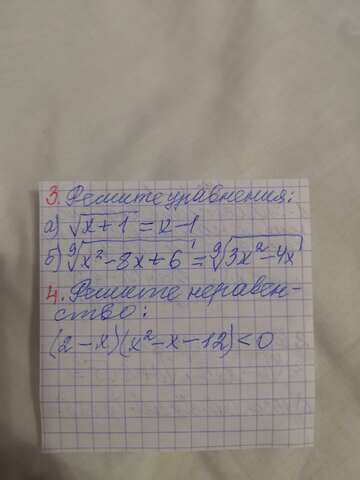 3. Решите уравнения:
а) √x+1 = x-1
б) ⁹√x²-8x+6 = ⁹√3x²-4x
4. Решите неравен-
ство:
(2-x)(x²-x-12)<0